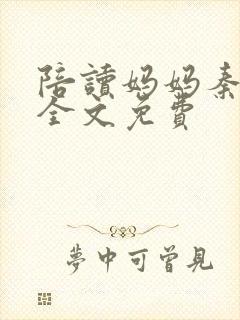 陪讀妈妈秦
全文免費
夢中可曾見